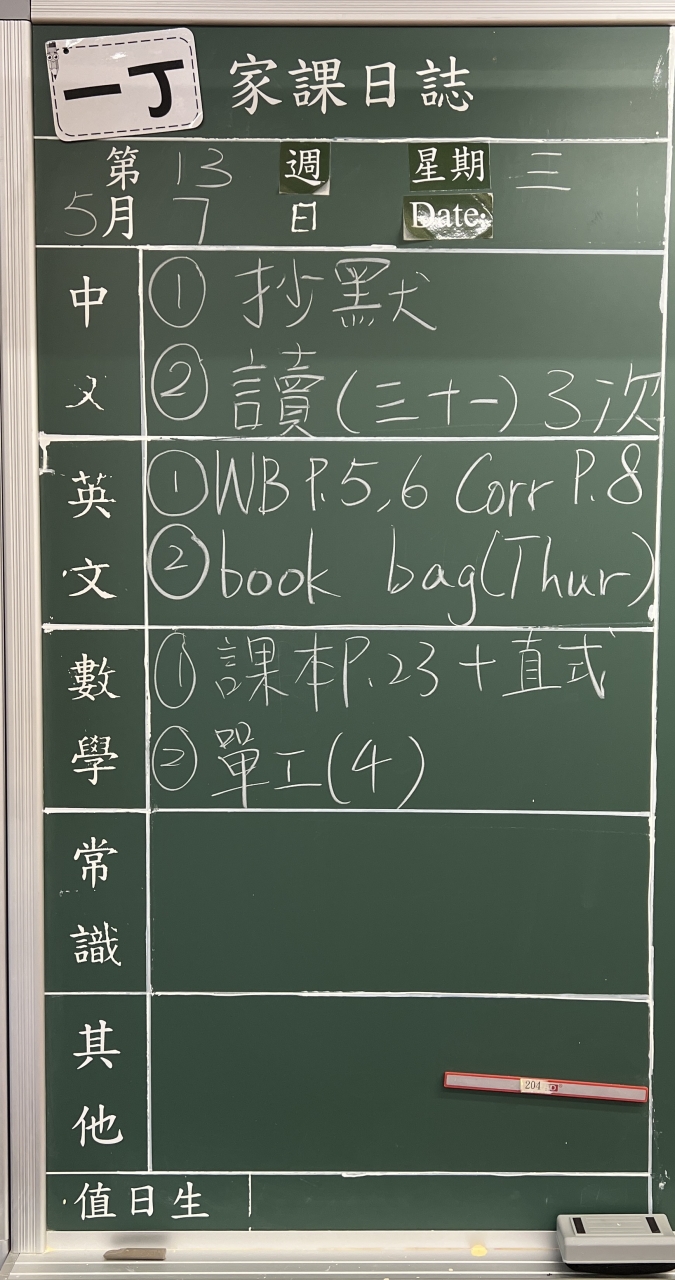 一丁 家課日誌
第 13 週 星期 三
5月 7 日 Date:
中文 ① 抄默
② 讀(三十一) 3次
英文 ① WB P.5,6 Corr P.8
② book bag(Thur)
數學 ① 課本P.23 + 直式
② 單工(4)
常識
其他
204
值日生